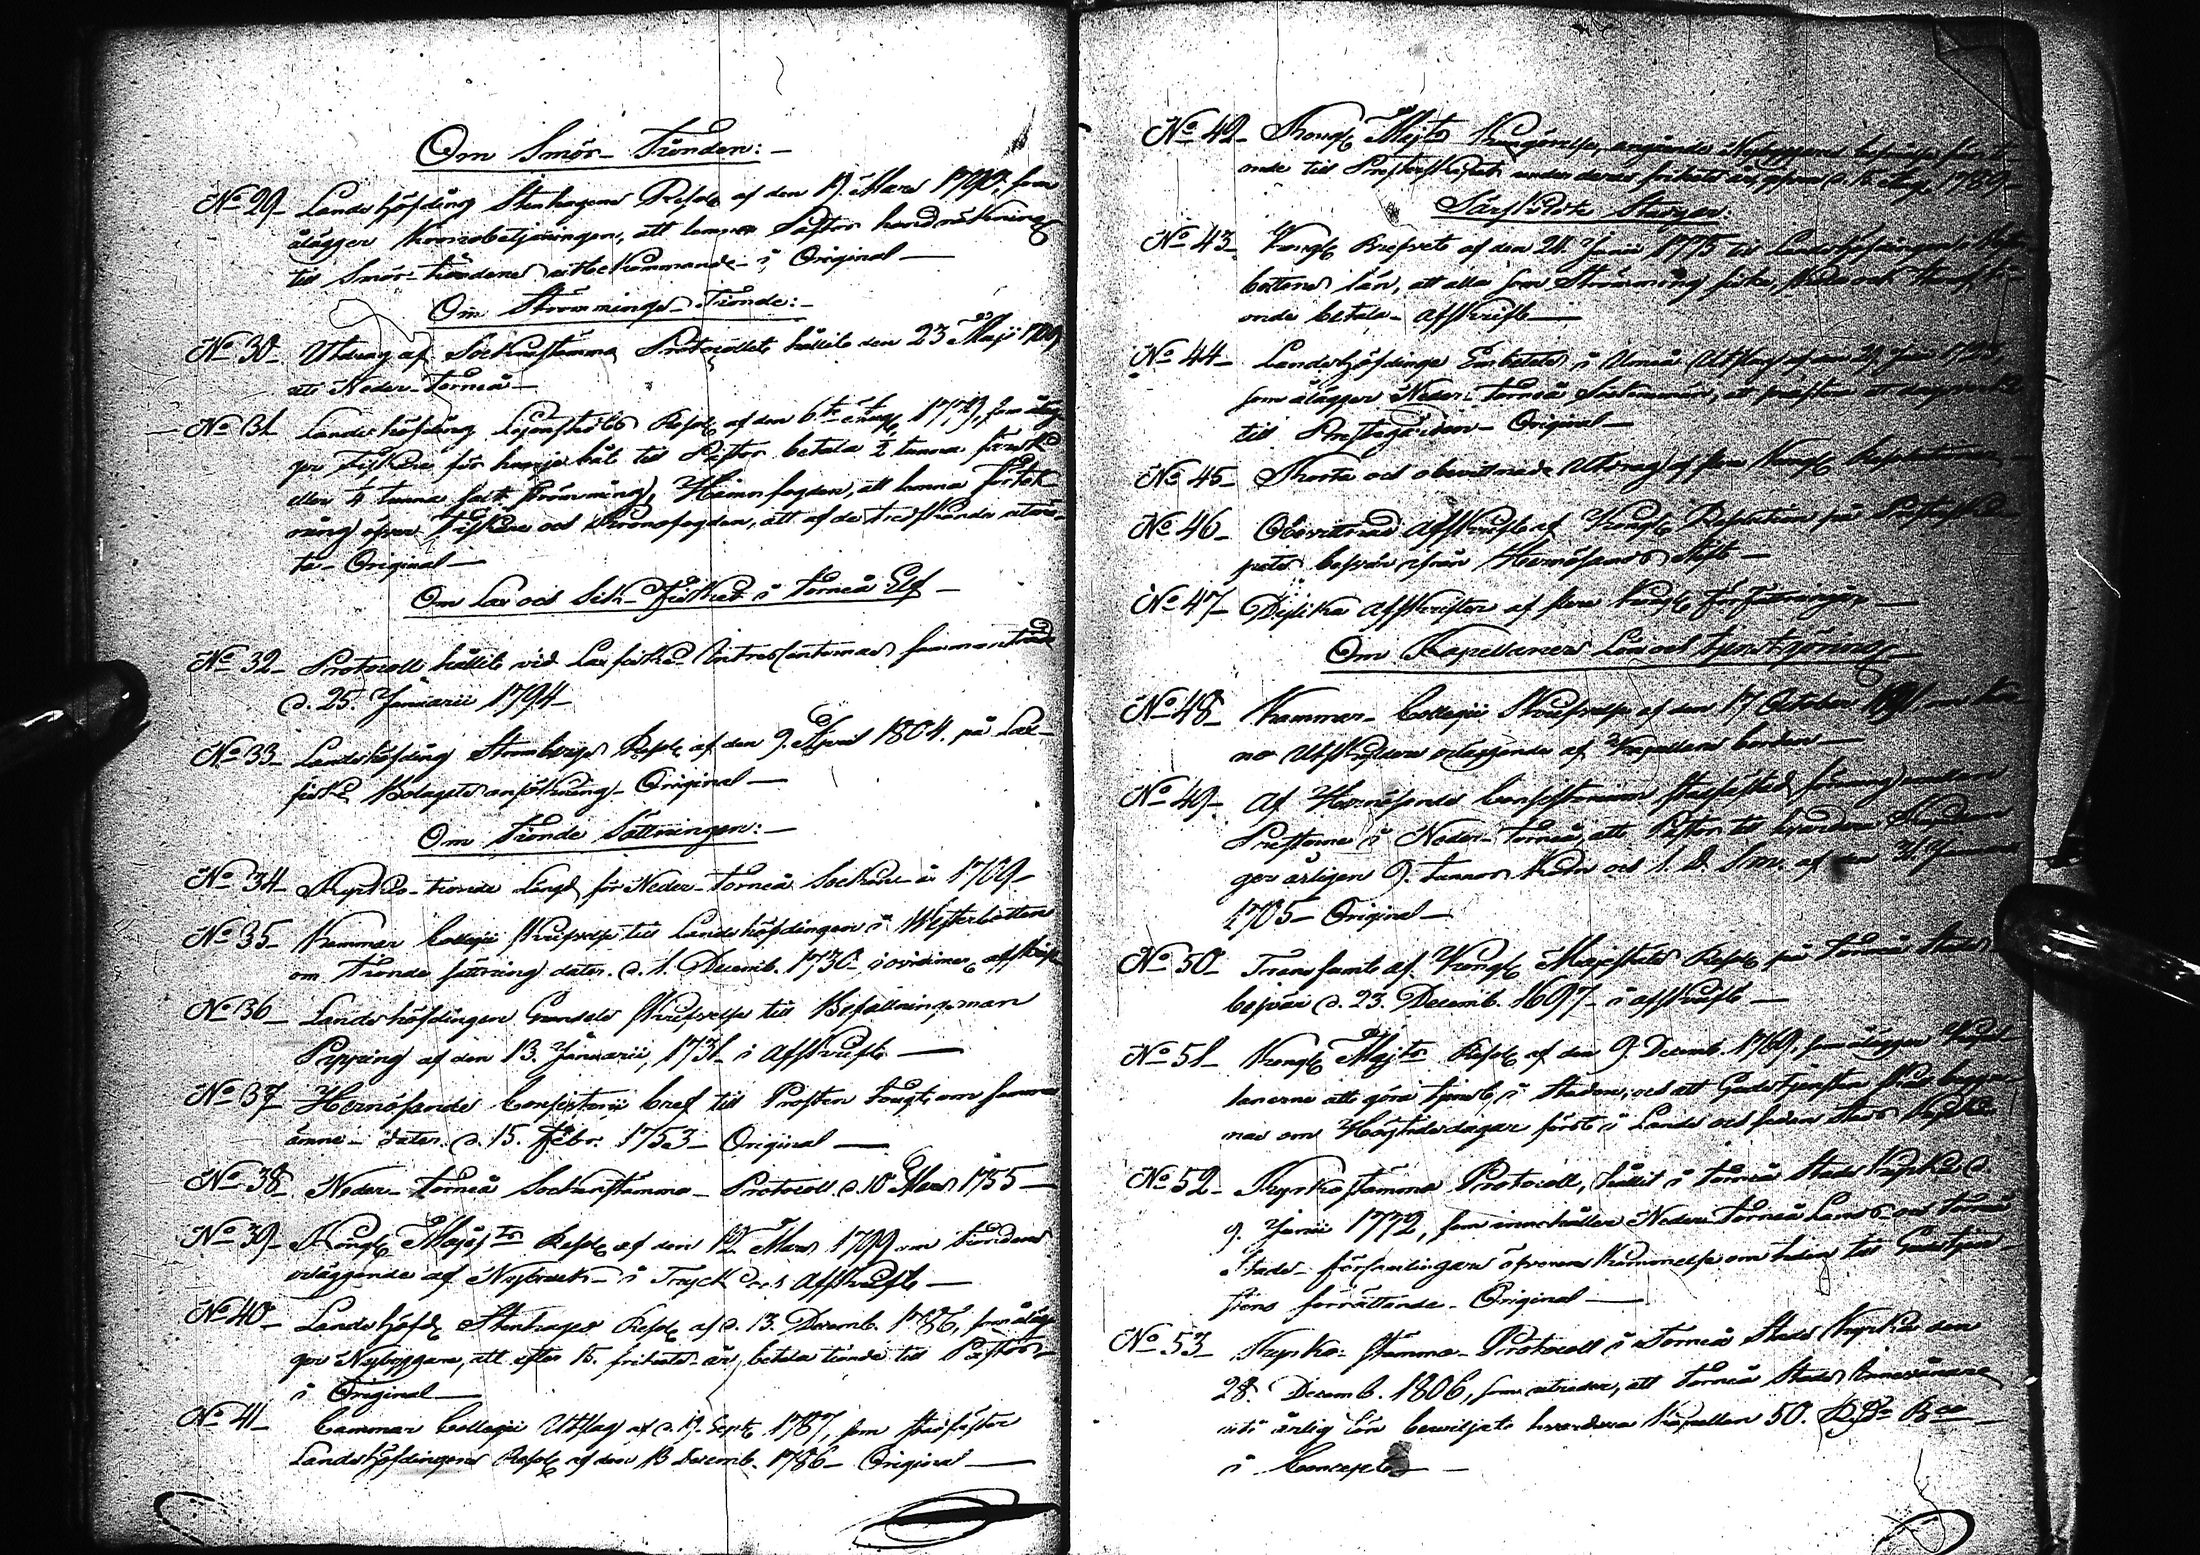 Om Smör-Tionden:-
No 29- Landshöfding Stenhagens Resol. af den 19. Mars 1792, som
ålägger Kronobetjeningen, att lemna Pastor handräckning
till Smör-tiondens utbekommande- i Original-
Om Strömmings-Tionde:-
No 30- Utdrag af Sockenstämma Protocollet hållit den 23 Maji
uti Neder-Torneå-
No 31 Landshöfding Resol. af den 6te Aug. 1779, som åläg-
ger Fiskare för hvarje båt till Pastor betala ½ tunna färsk
eller ¼ tunna salt strömming, Hamnfogden, att lemna förtek-
ning öfver Fiskare och Kronofogden, att af de tredskande utmä-
ta- Original-
Om Lax och Sik-Fisket i Torneå Elf-
No 32- Protocoll hållit vid Laxfiske Intressenternas sammanträde
d. 25. Januarii 1794-
No 33- Landshöfding Strombergs Resol. af den 9. April 1804. på Lax-
fiske Bolagets ansökning- Original-
Om Tionde Sättningen:-
No 34- Kyrko-tionde Längd för Neder-Torneå Socken år 1709-
No 35- Kammar Collegii Skrifvelse till Landshöfdingen i Westerbotten
om Tionde sättning dater. d. 1. Decemb. 1730- i vidimer. afskrift
No 36- Landshöfdingen Grundels Skrifvelse till Befallningsman
Pipping af den 13. Januarii, 1731- i Afskrift-
No 37- Hernösands Consistorii bref till Prosten Fougt om samma
ämne- dater. d. 15. Febr. 1753- Original-
No 38- Neder-Torneå Sockenstämmo-Protocoll d. 10 Mars 1755-
No 39- Kongl. Majsts Resol. af den 12. Mars 1799 om tiondens
erläggande af Nybruk- i Tryck och Afskrift-
No 40- Landshöfd. Stenhagens Resol. af d. 13. Decemb. 1786, som åläg-
ger Nybyggare, att efter 15. frihets-år, betala tionde till Pastor-
i Original-
No 41- Cammar Collegii Utslag af d. 19. Sept. 1787, som stadfäster
Landshöfdingens Resol. af den 13 Decemb. 1786- Original-
No 42- Kongl. Majts Kungörelse, angående Nybyggens
onde till Presterskapet under deras frihets år, gifven d. 15 Aug. 1789-
Särskildte Stycken:
No 43- Kongl. Brefvet af den 24. Junii 1775 till Landshöfdingen i Wester-
bottens län, att alla som Strömming fiska,
onde betala- afskrift-
No 44- Landshöfdinge Embetets i Umeå Utslag af den 29. Jun.
som ålägger Neder-Torneå Sockenmän, att
till Prestegården- Original-
No 45- Korta och obevittnade Utdrag af flera Kongl. Resolutioner-
No 46- Obevittnad Afskrift af Kongl. Resolution på Presterska-
pets besvär ifrån Hernösands Stift-
No 47- Dylika Afskrifter af flera Kongl. författningar-
Om Kapellaners Lön och tjenstgöring-
No 48- Kammar-Collegii Skrifvelse af den 17 October
no Utskylders erläggande af Kapellans borden-
No 49- Af Hernösands Consistorium stadfästad förening emellan
Presterne i Neder-Torneå, att Pastor till hvardera
ger årligen 9. Tunnor Korn och 1. D. Smr. af den 31. Januar.
1705- Original-
No 50- Transsumt af Kongl. Majestäts Resol. på Torneå Stads
besvär d. 23. Decemb. 1697- i afskrift-
No 51- Kongl. Majts Resol. af den 9. Decemb. 1769. som ålägger Kapel-
lanerne att göra tjenst, i Staden, och att Gudstjensten skall begyn-
nas om Högtidsdagar först i Lands och sedan Stads Kyrkan-
No 52- Kyrkostämmo Protocoll, hållit i Torneå Stads Kyrka d.
9. Junii 1772, som innehåller Neder Torneå Lands- och Torneå
Stads- församlingars öfverenskommelse om tiden till Gudstjen-
stens förrättande- Original-
No 53- Kyrko-Stämmo-Protocoll i Torneå Stads Kyrka den
28. Decemb. 1806, som utvisar, att Torneå Stads Innevånare
uti årlig lön beviljat hvardera Kapellan 50. Rdr Bco
i Concept-